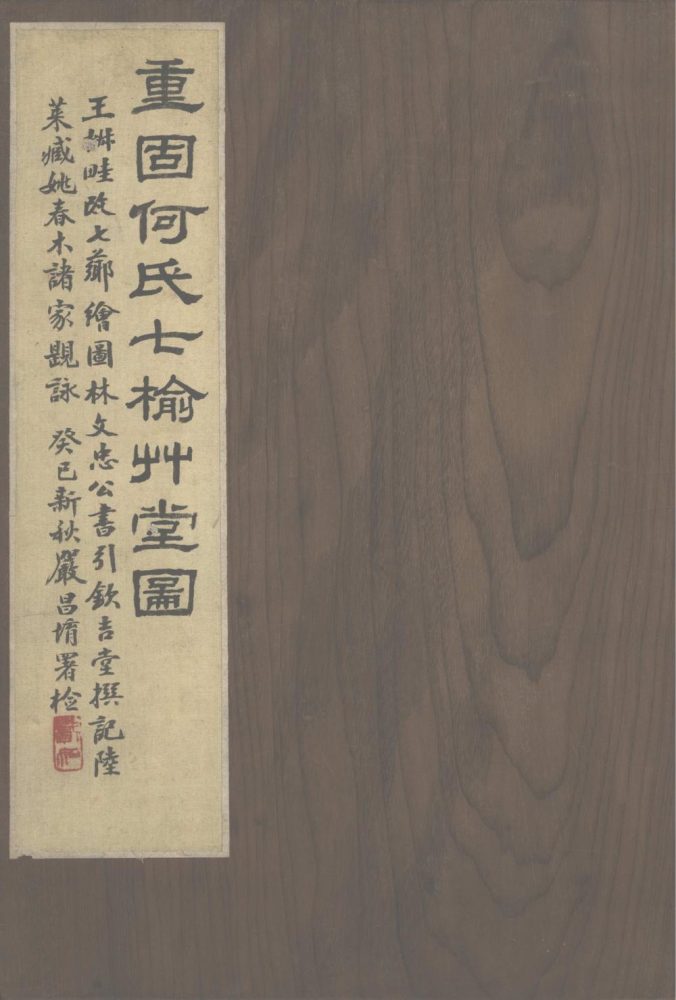 重固何氏七榆艸堂圖
王椒畦改七薌繪圖林文忠公書引欽吉堂撰記陸
萊臧姚春木諸家題詠 癸巳新秋嚴昌堉署检
載如